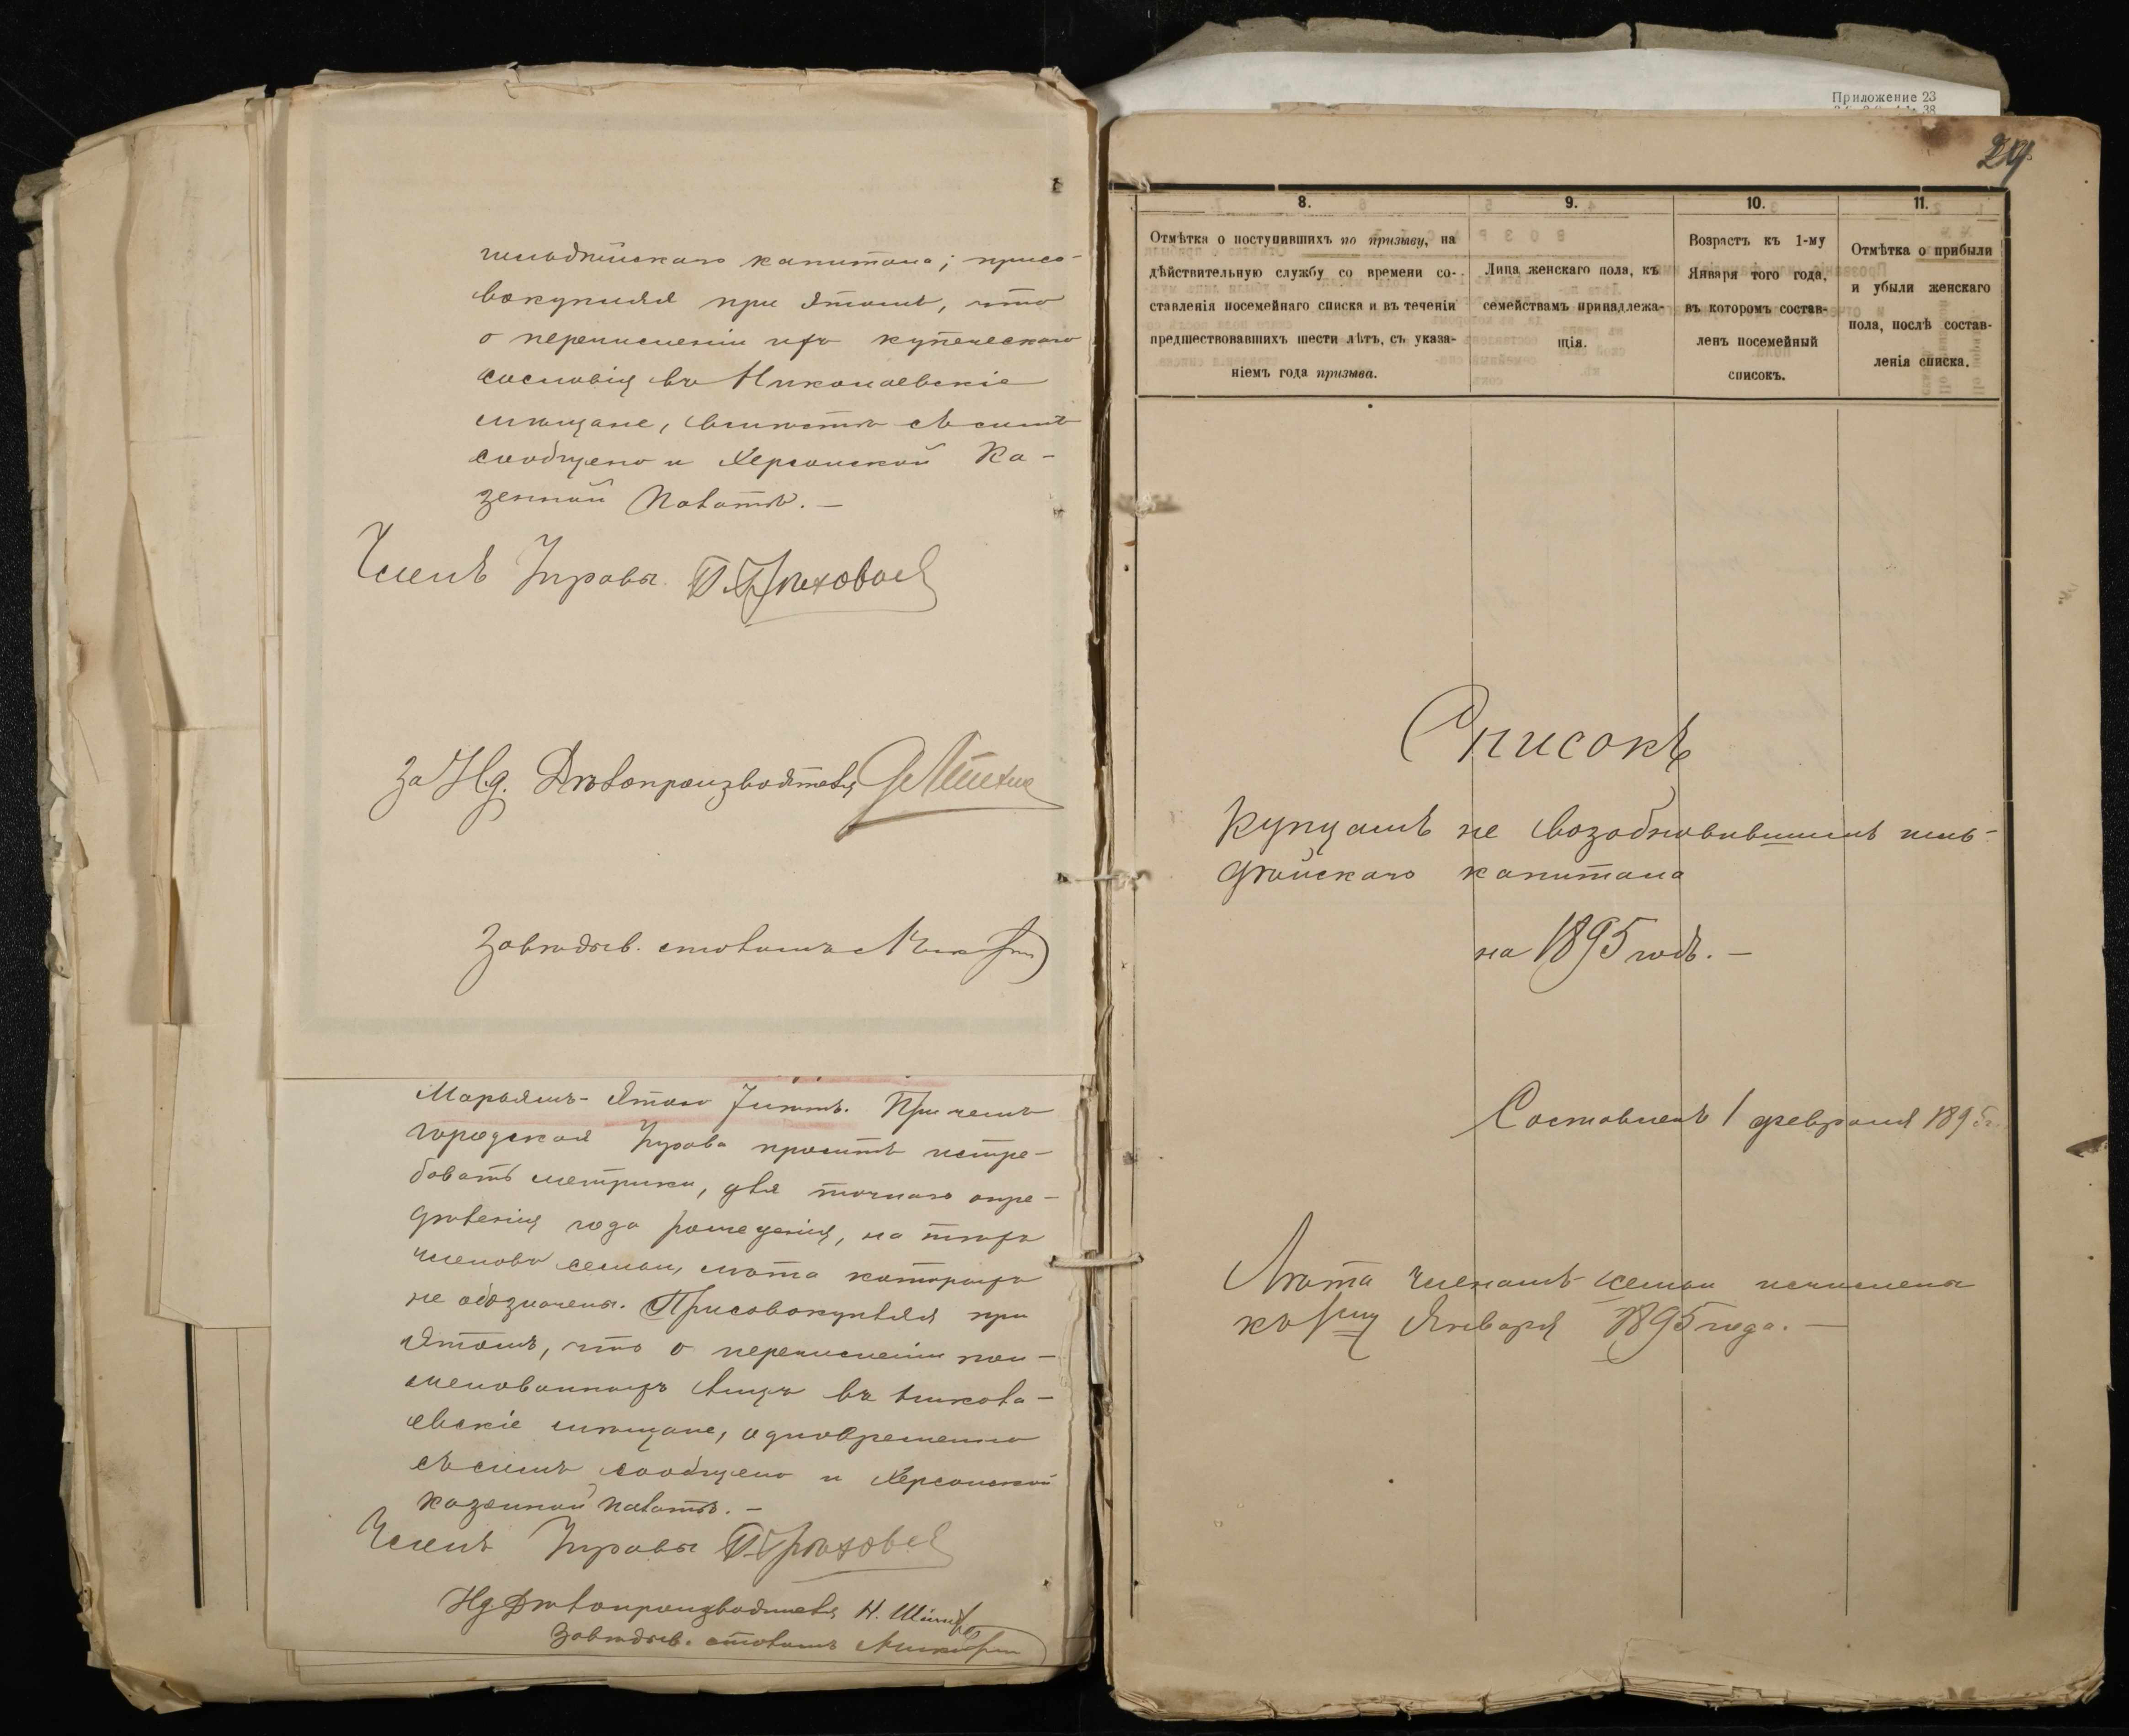 гильдейскаго капитала; присо-
вокупляя при этомъ, что
о перечисленіи изъ купеческаго
сословія въ Николаевскіе
мѣщане, вмѣстѣ съ симъ
сообщено и Херсонской Ка-
зенной Палатѣ. —
Членъ Управы
За Нд. Дѣлопроизводителя
Завѣдыв. столомъ
Марьямъ-Этого Унитъ. При чемъ
городская Управа проситъ истре-
бовать метрики, для точнаго опре-
дѣленія года рожденія, на тѣхъ
членовъ семьи, лѣта которыхъ
не обозначены. Присовокупляя при
этомъ, что о перечисленіи пои-
менованныхъ лицъ въ Никола-
евскіе мѣщане, одновременно
съ симъ сообщено и Херсонской
Казенной Палатѣ. —
Членъ Управы
Нд. Дѣлопроизводителя Н.
Завѣдыв. столомъ
Приложение 23
38
29
8.
9.
10.
11.
Отмѣтка о поступившихъ по призыву, на
дѣйствительную службу со времени со-
ставленія посемейнаго списка и въ теченіи
предшествовавшихъ шести лѣтъ, съ указа-
ніемъ года призыва.
Лица женскаго пола, къ
семействамъ принадлежа-
щія.
Возрастъ къ 1-му
Января того года,
въ которомъ состав-
ленъ посемейный
списокъ.
Отмѣтка о прибыли
и убыли женскаго
пола, послѣ состав-
ленія списка.
Списокъ
Купцамъ не возобновившимъ гиль-
дейскаго капитала
на 1895 годъ. —
Составленъ 1 февраля 1895 г.
Лѣта членамъ семьи исчислены
къ 1му Января 1895 года. —